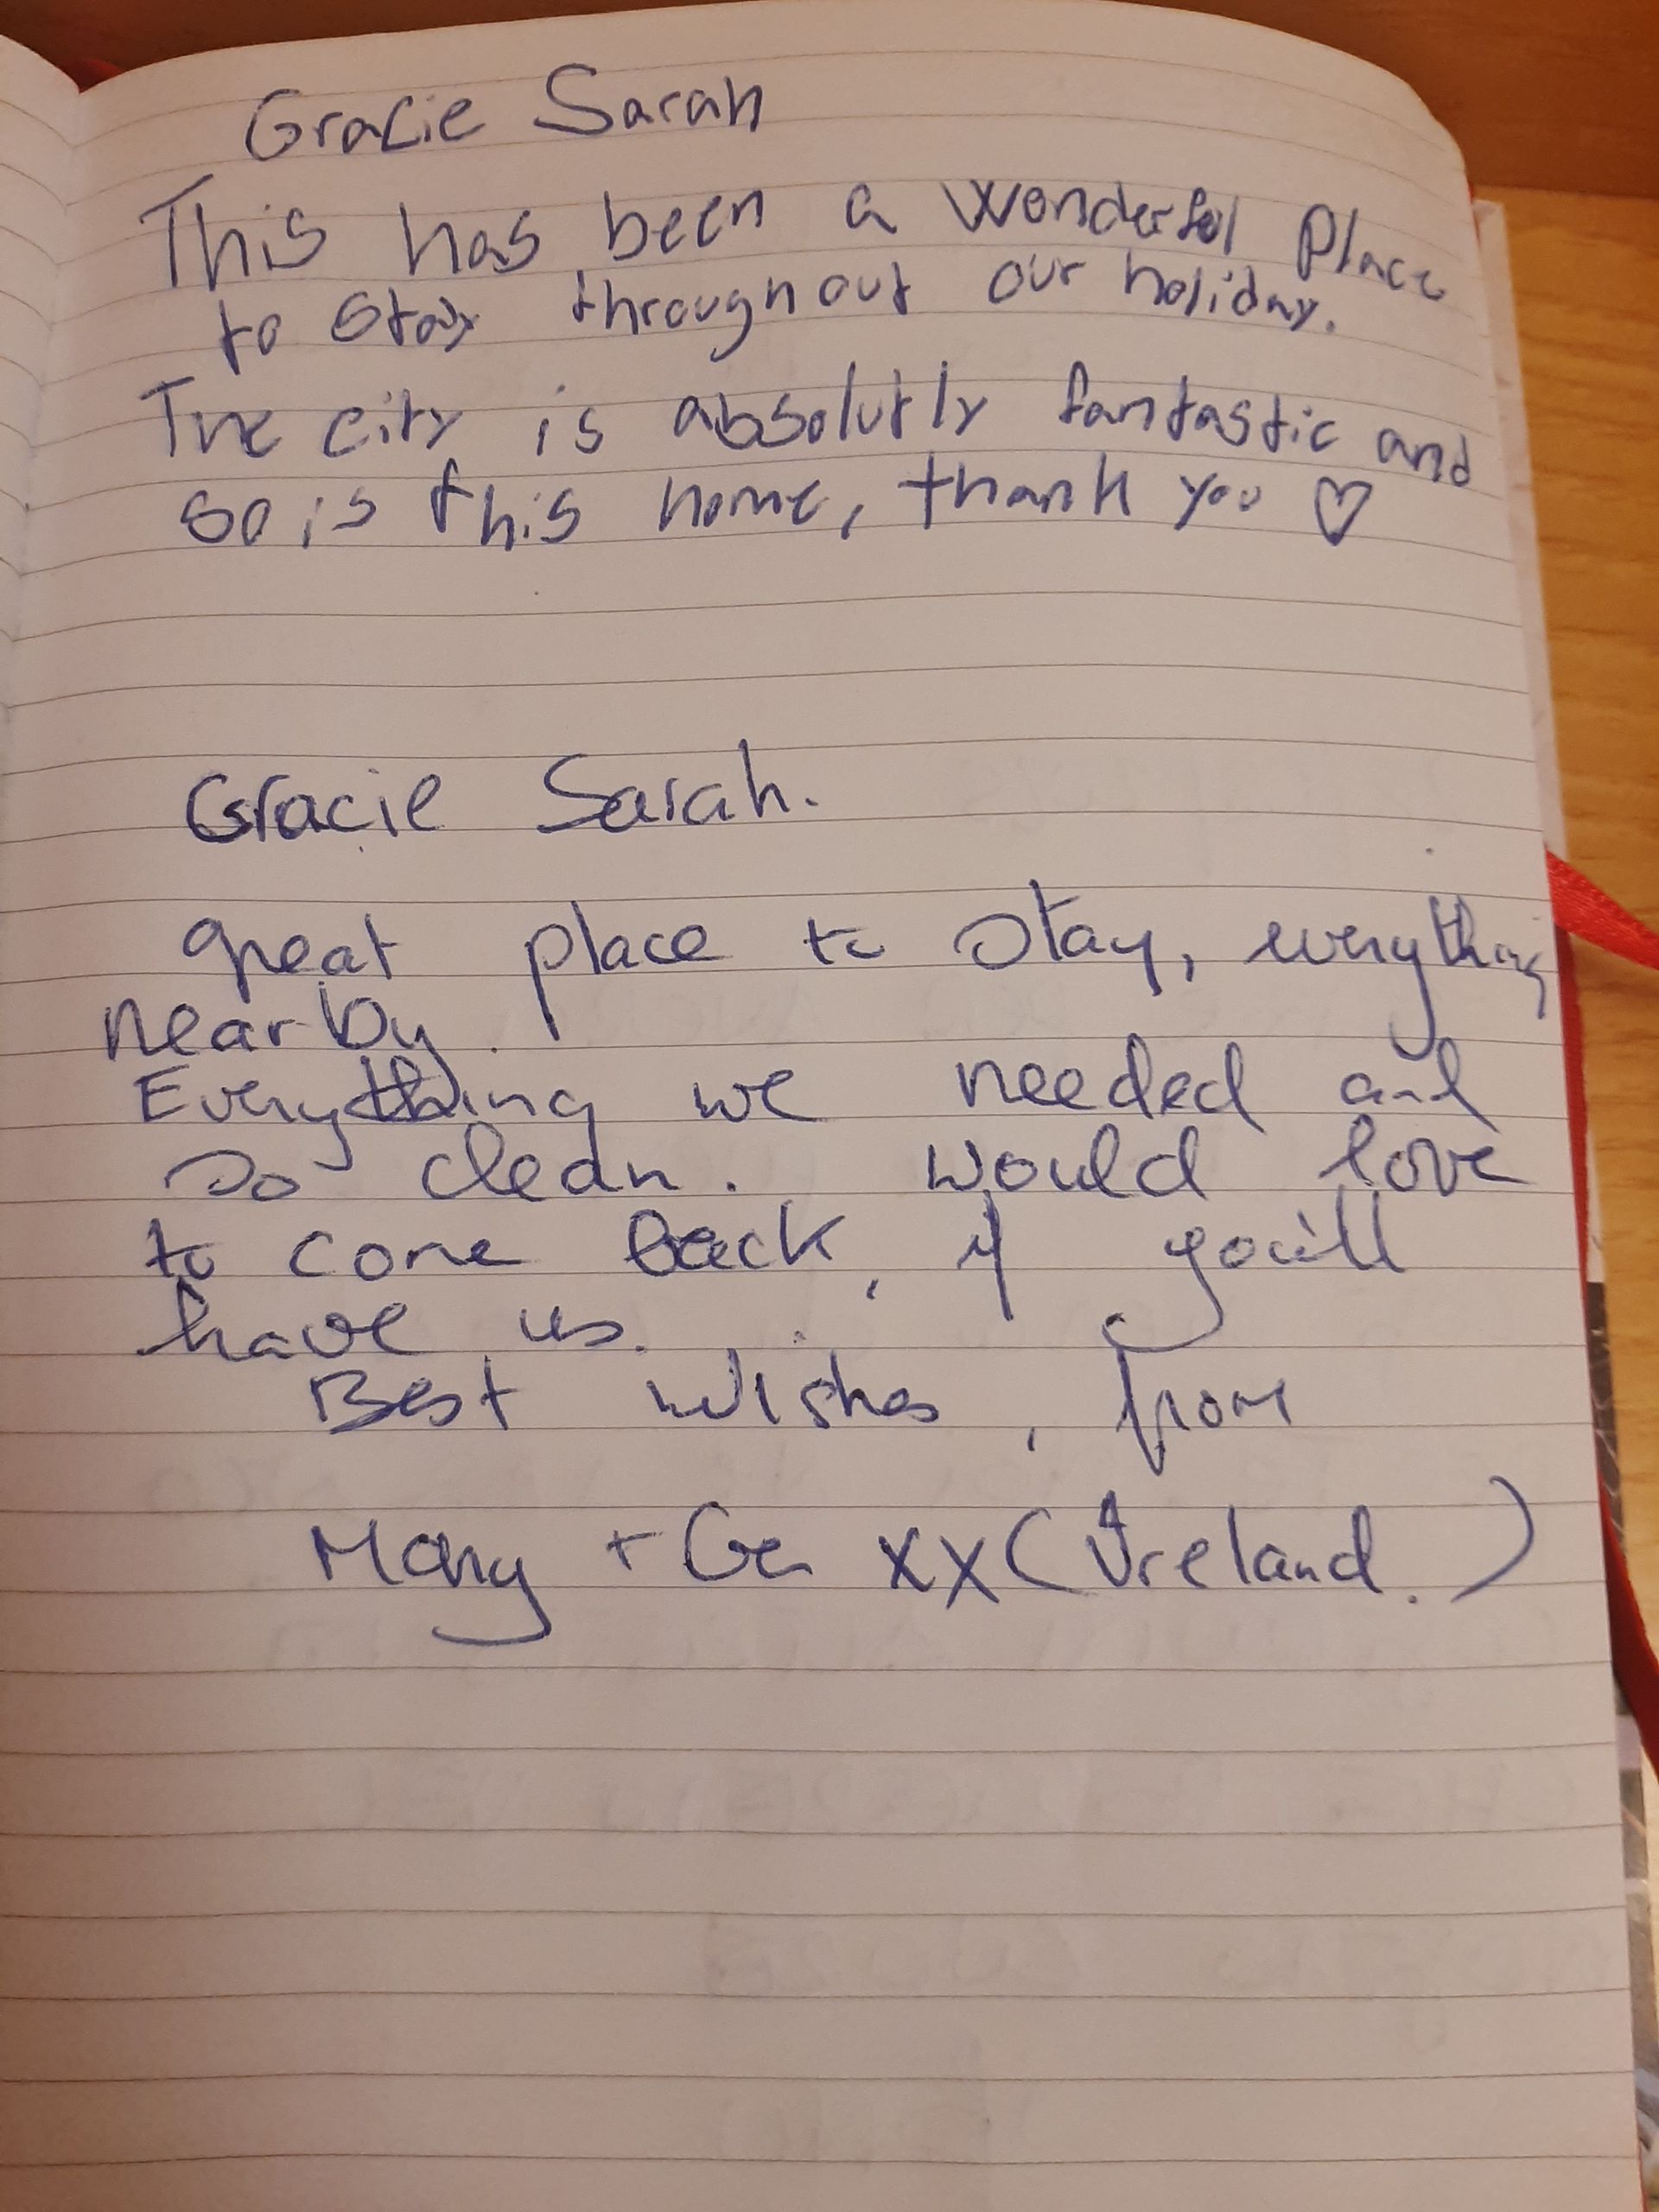 Gracie Sarah
This has been a wonderful place
to stay throughout our holiday.
The city is absolutly fantastic and
so is this home, thank you ♡
Gracie Sarah.
great place to stay, everything
nearby.
Everything we needed and
so clean. would love
to come back, if you'll
have us.
Best wishes, from
Mary + Ger xx (Ireland.)